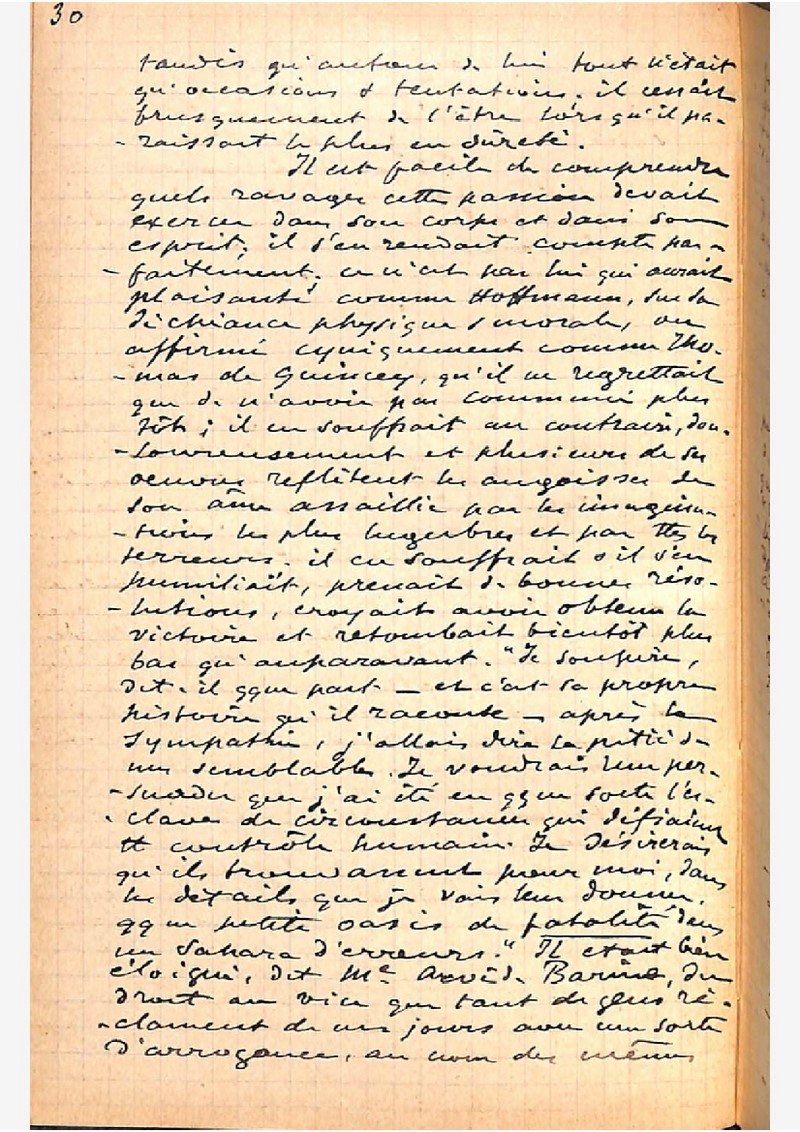 30
tandis qu'autour de lui tout n'était
qu'occasions & tentations. il cessait
brusquement de l'être lorsqu'il pa-
- raissait le plus en sûreté.
Il est facile de comprendre
quels ravages cette passion devait
exercer dans son corps et dans son
esprit; il s'en rendait compte par-
- faitement. ce n'est pas lui qui aurait
plaisanté comme Hoffmann, sur sa
déchéance physique & morale, ou
affirmé cyniquement comme Tho-
- mas de Quincey, qu'il ne regrettait
que de n'avoir pas commencé plus
tôt; il en souffrait au contraire, dou-
- loureusement et plusieurs de ses
oeuvres reflètent les angoisses de
son âme assaillie par les imagina-
- tions les plus lugubres et par ttes les
terreurs. il en souffrait & il s'en
humiliait, prenait de bonnes réso-
- lutions, croyait avoir obtenu la
victoire et retombait bientôt plus
bas qu'auparavant. "Je soupire,
dit-il qque part — et c'est sa propre
histoire qu'il raconte — après la
sympathie, j'allais dire la pitié de
mes semblables. Je voudrais leur per-
- suader que j'ai été en qque sorte l'es-
- clave de circonstances qui défiaient
tt contrôle humain. Je désirerais
qu'ils trouvassent pour moi, dans
les détails que je vais leur donner,
qque petite oasis de fatalité dans
un Sahara d'erreurs." Il était bien
éloigné, dit Me Arvède Barine, du
droit au vice que tant de gens ré-
- clament de nos jours avec une sorte
d'arrogance, au nom des mêmes